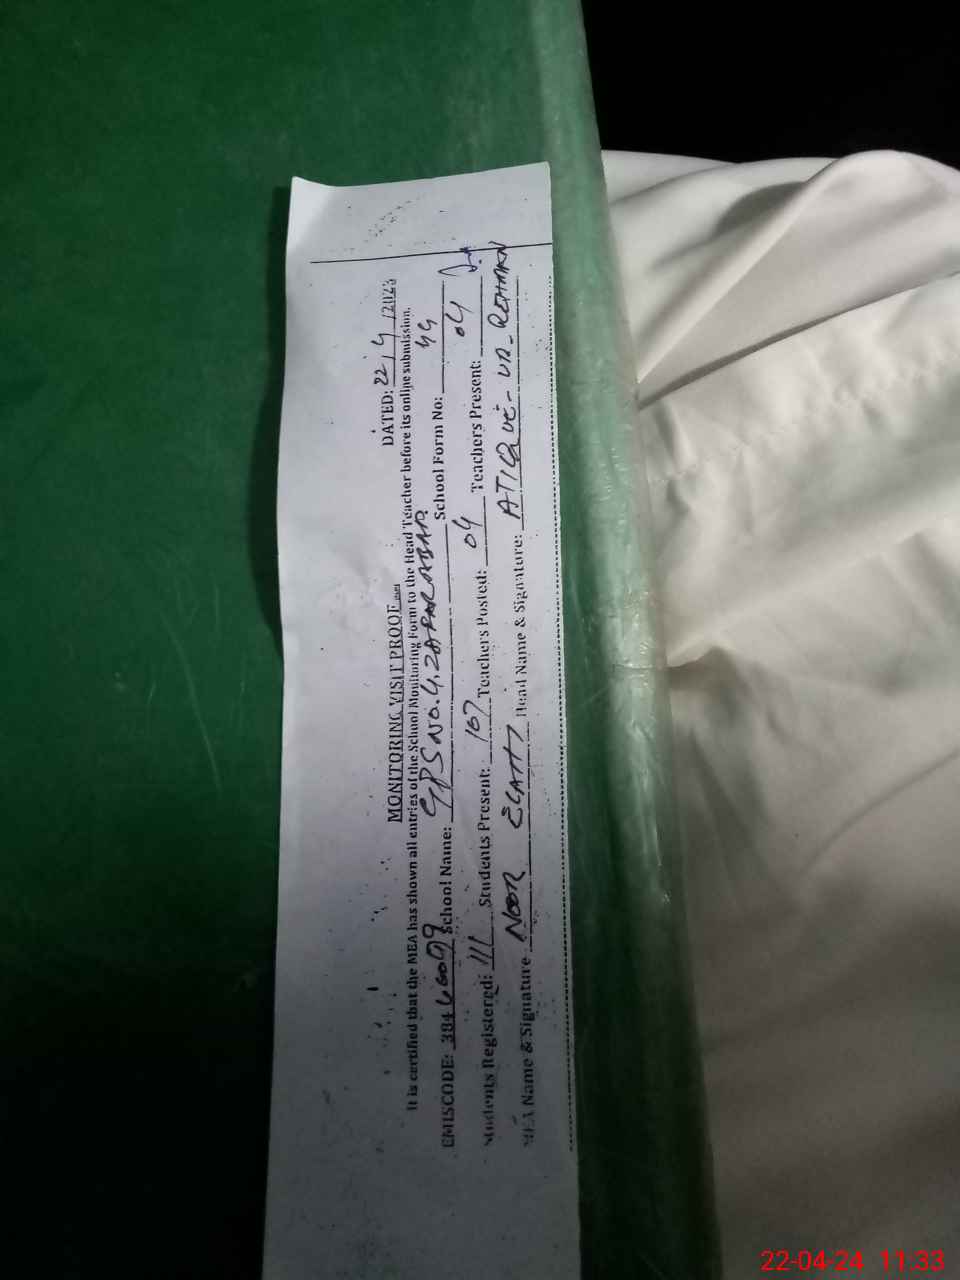 MONITORING VISIT PROOF
DATED: 22/4/2023
It is certified that the MEA has shown all entries of the School Monitoring Form to the Head Teacher before its online submission.
EMISCODE: School Name: GPS No. 4, School Form No: 44
Students Registered: 111 Students Present: 107 Teachers Posted: 04 Teachers Present: 04
MEA Name & Signature: NOOR ELAHI Head Name & Signature: ATIQUE-UR-REHMAN
22-04-24 11:33